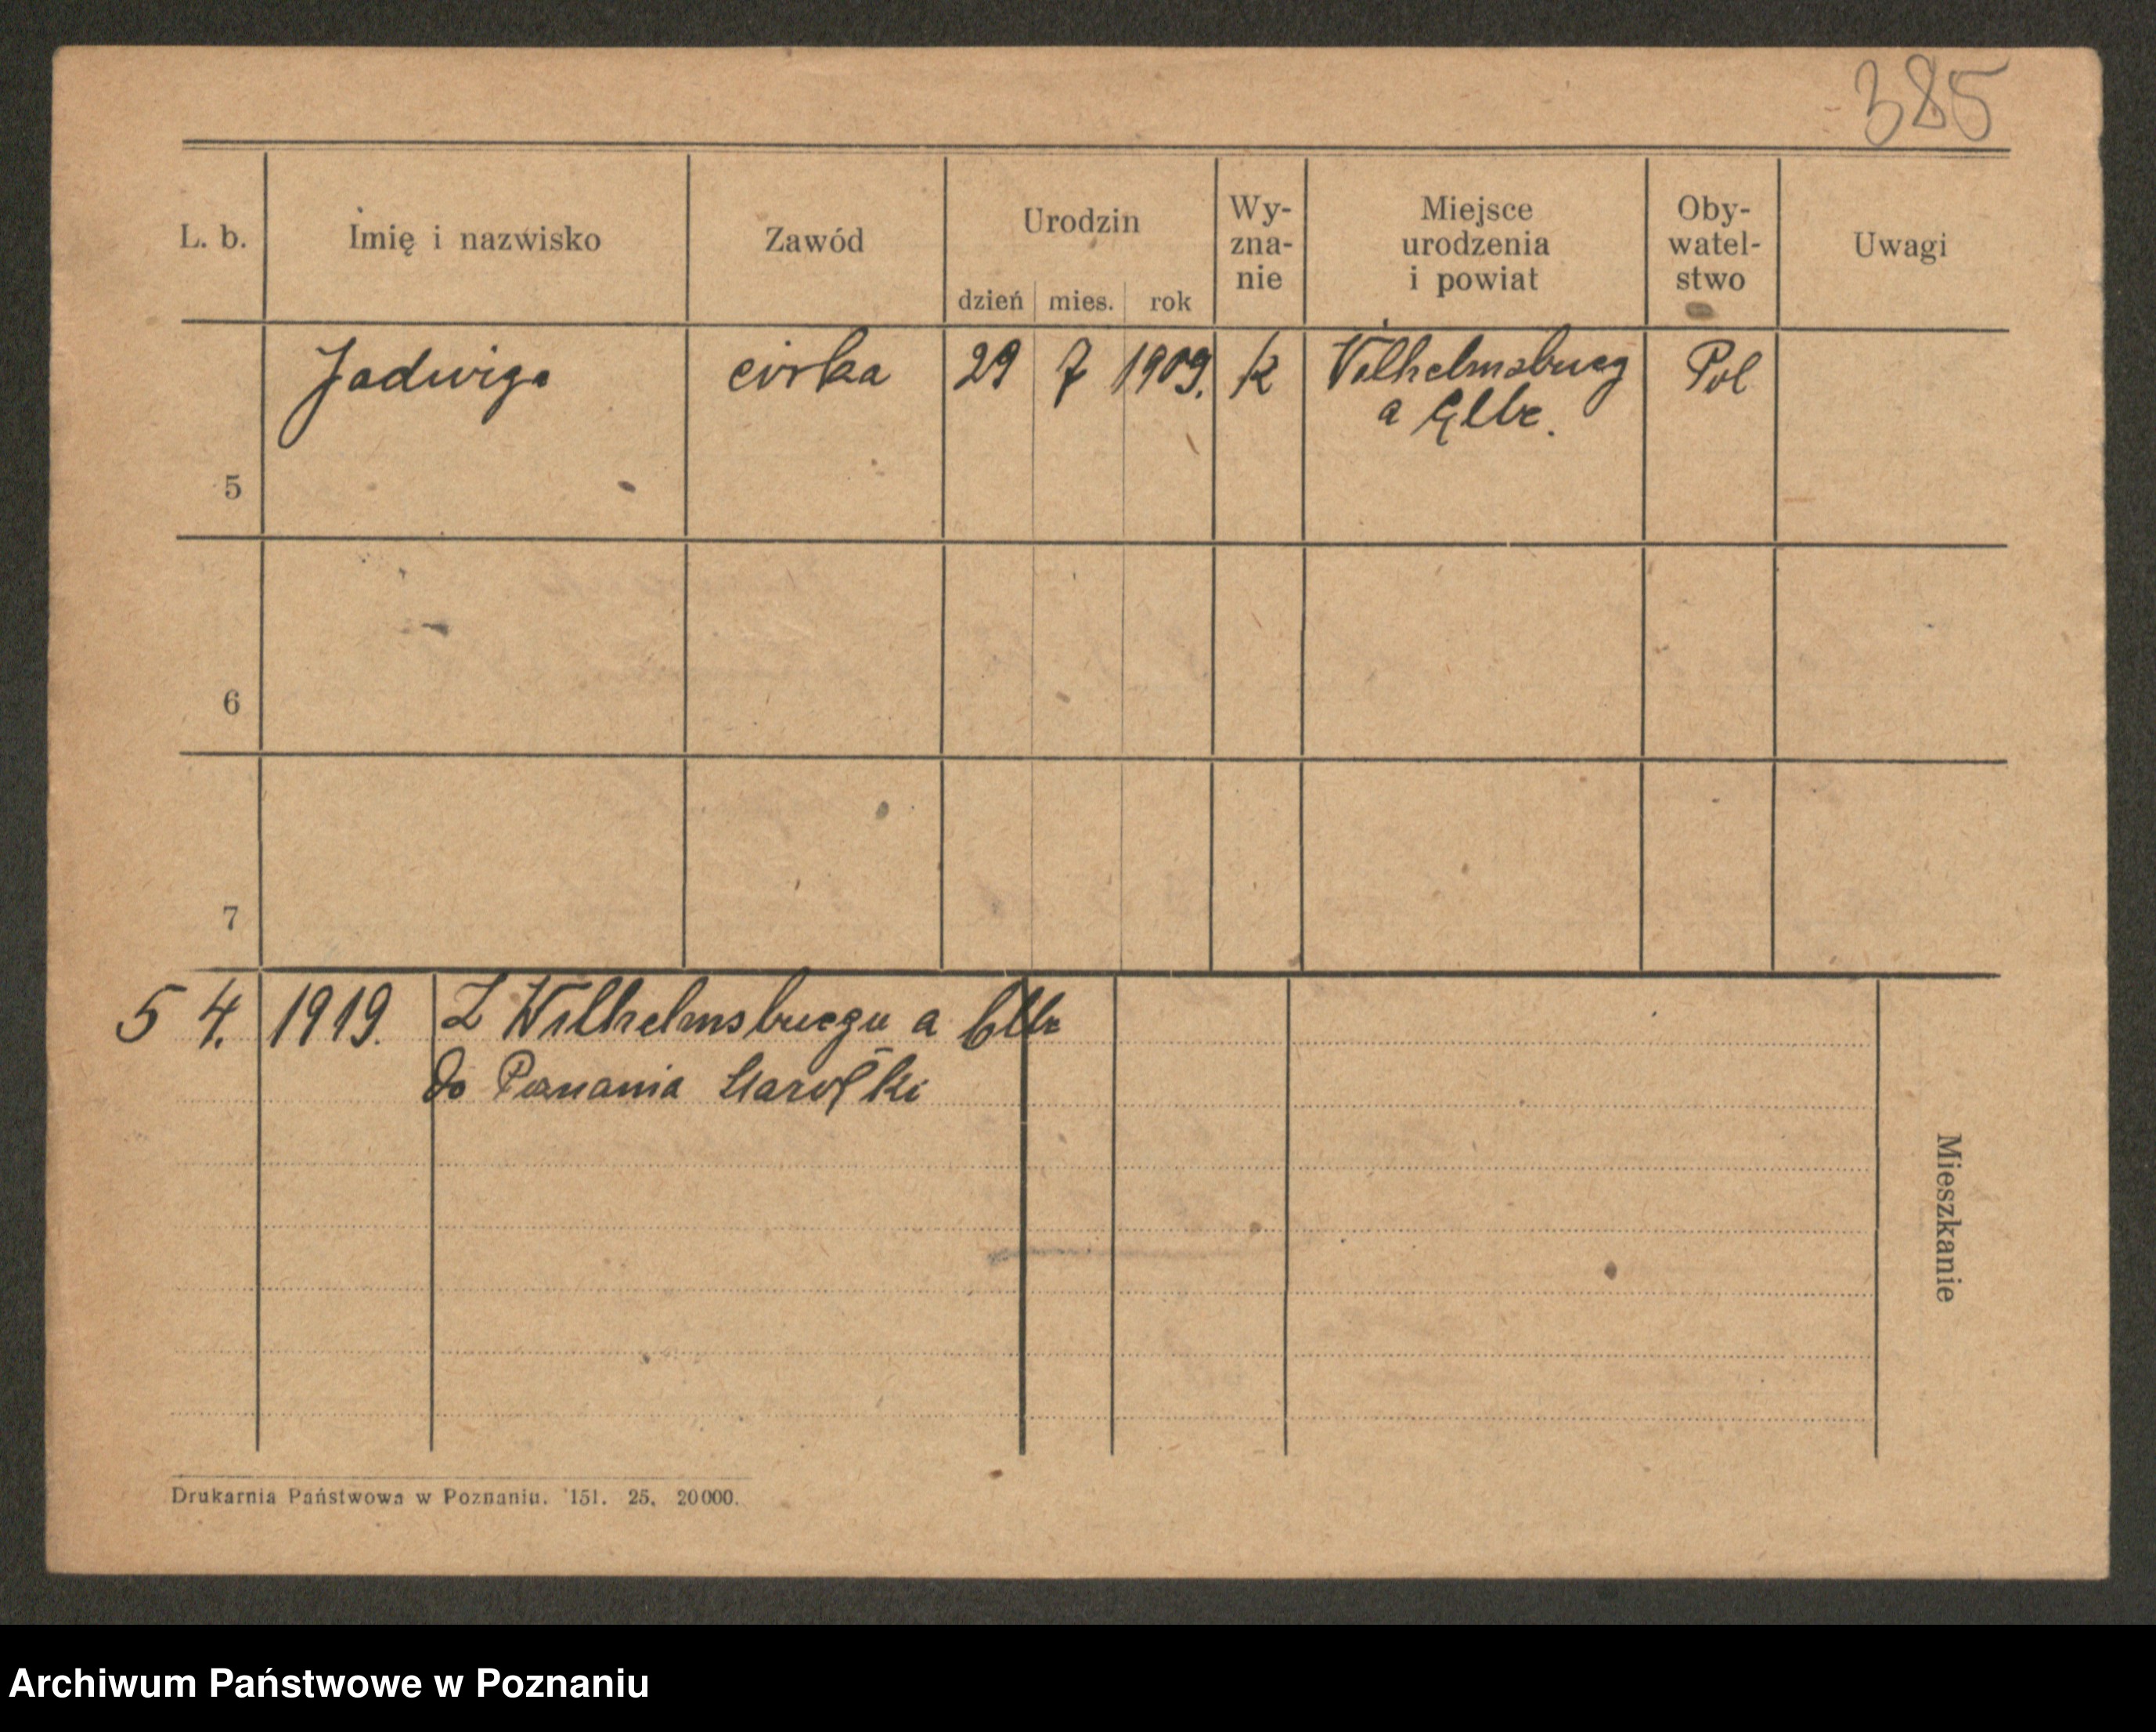 385
L. b.
Imię i nazwisko
Zawód
Urodzin
dzień mies. rok
Wy-
zna-
nie
Miejsce
urodzenia
i powiat
Oby-
watel-
stwo
Uwagi
5 Jadwiga córka 29 7 1909. k Wilhelmsburg Pol
a Elbe.
6
7
5 4. 1919. Z Wilhelmsburgu a Elbe
do Poznania
Mieszkanie
Drukarnia Państwowa w Poznaniu. 151. 25. 20000.
Archiwum Państwowe w Poznaniu